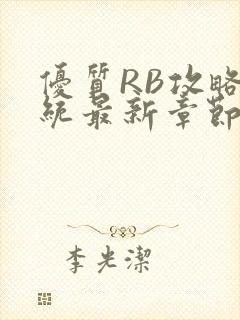 優質RB攻略
統最新章節
李光潔